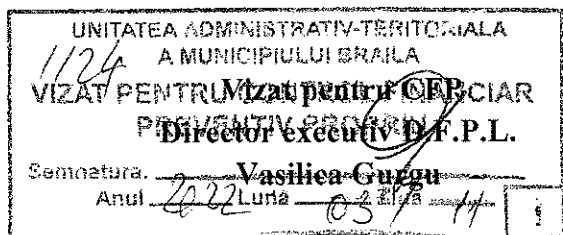 UNITATEA ADMINISTRATIV-TERITORIALA
A MUNICIPIULUI BRAILA
1124
VIZAT PENTRU CIAR
Vizat pentru CFP
PREVENTIV
Director executiv D.F.P.L.
Semnatura.
Vasilica Gurgu
Anul 2022 Luna 03 Ziua 11